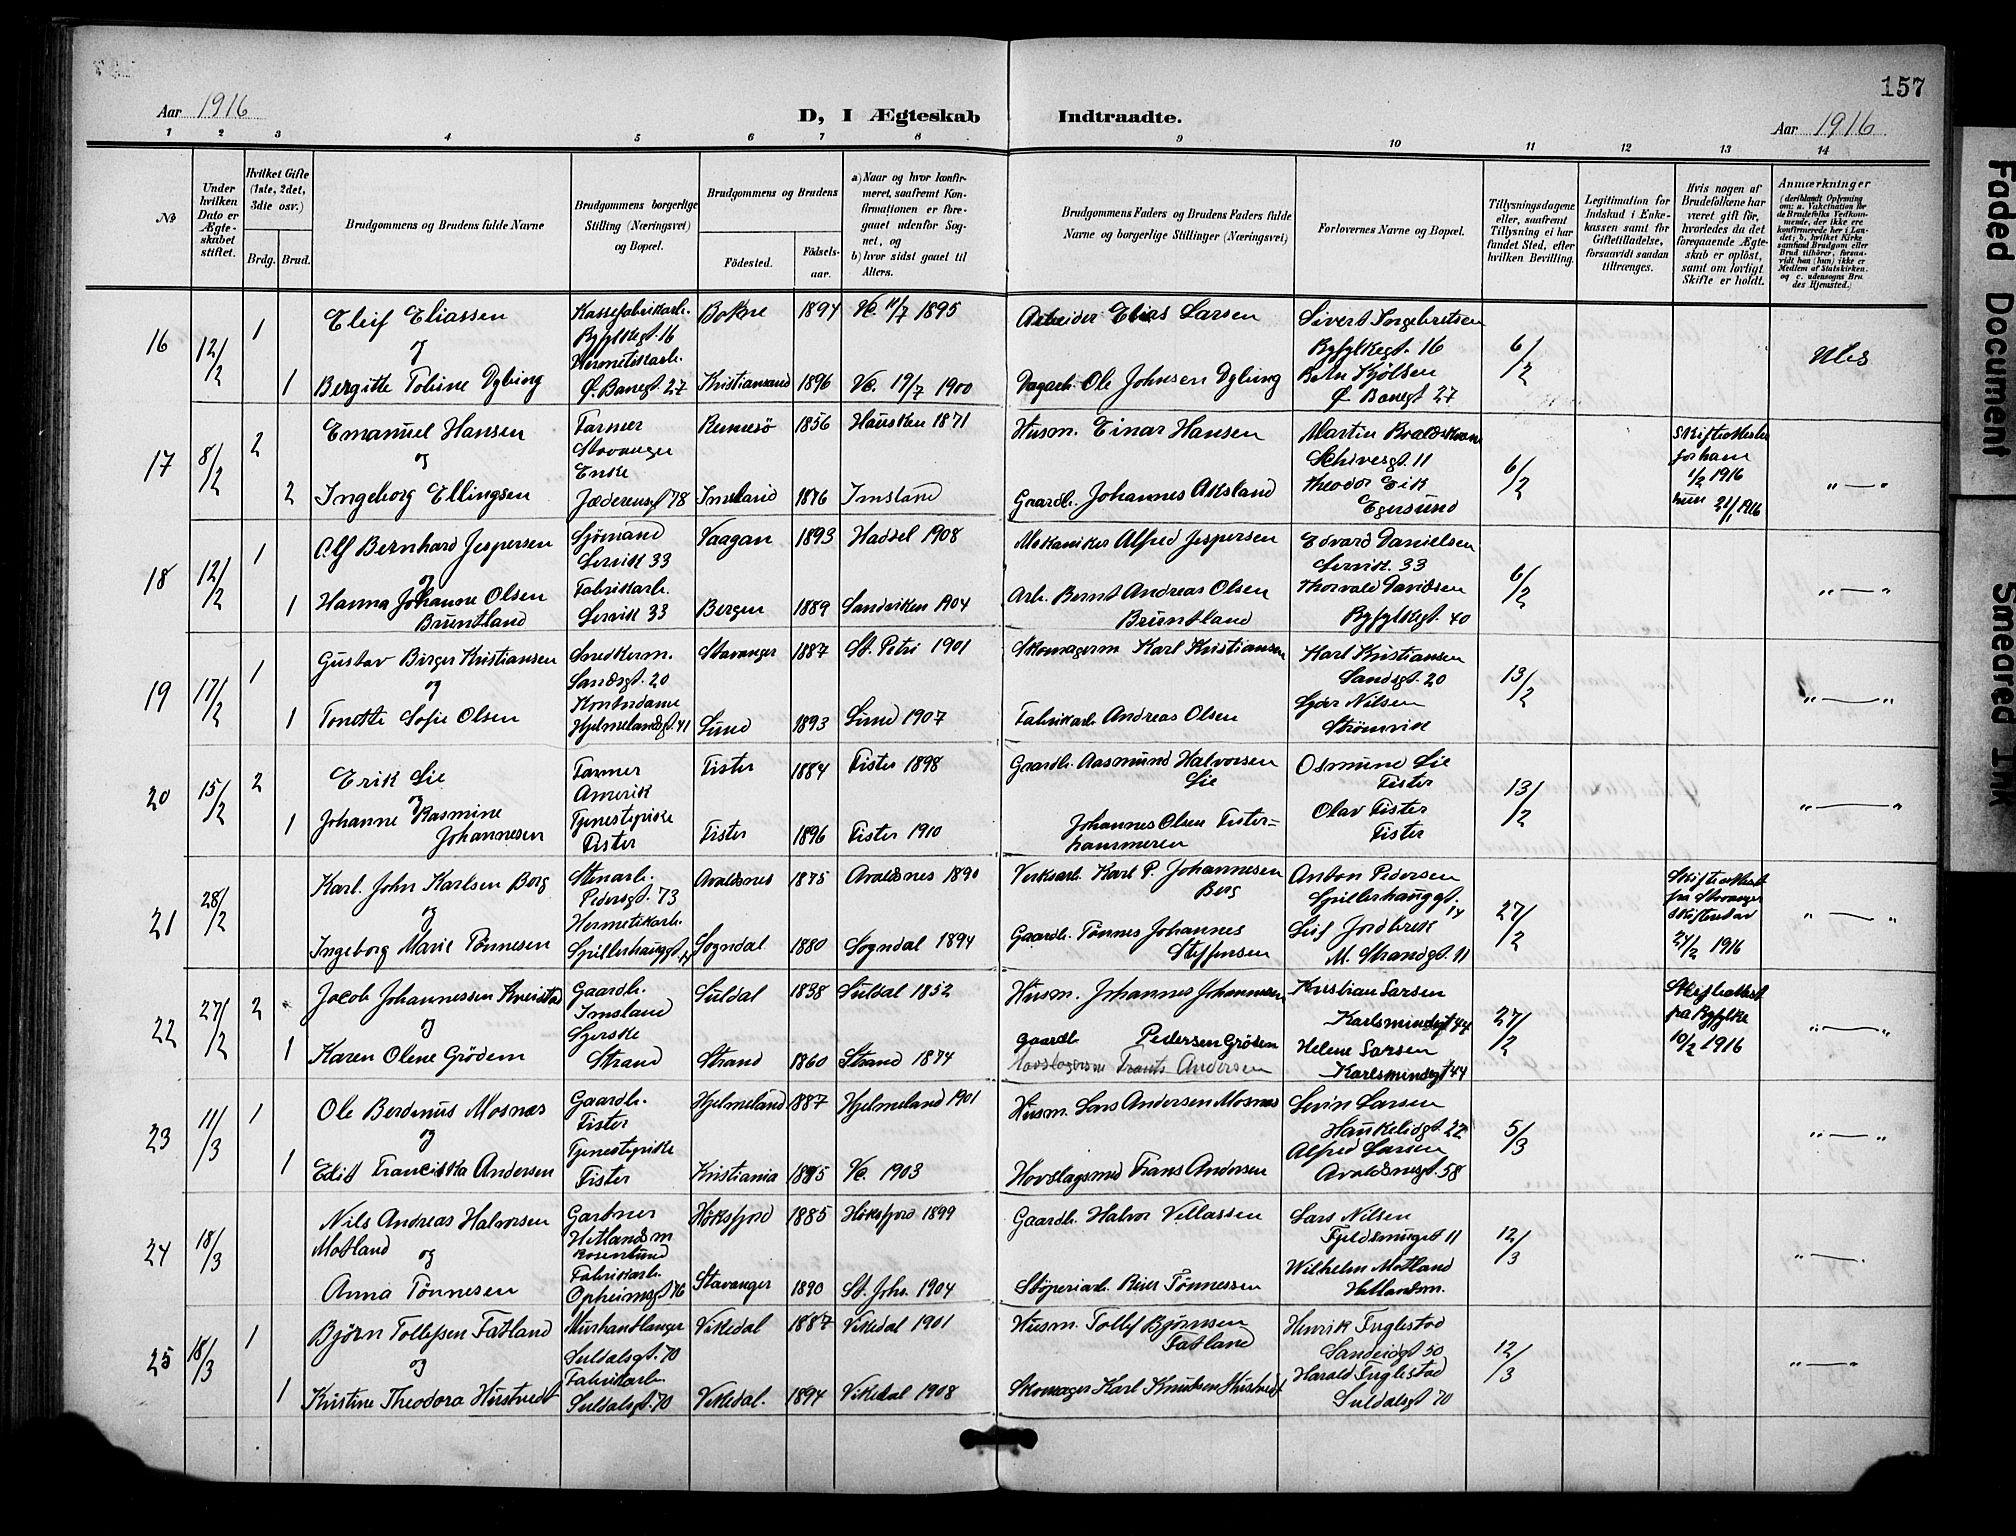 157
Aar 1916
D, I Ægteskab Indtraadte.
Aar 1916
1 2 3 4 5 6 7 8 9 10 11 12 13 14
№
Under hvilken Dato er Ægteskabet stiftet.
Hvilket Gifte (1ste, 2det, 3die osv.)
Brdg. Brud.
Brudgommens og Brudens fulde Navne
Brudgommens borgerlige Stilling (Næringsvei) og Bopæl.
Brudgommens og Brudens
Fødested.
Fødselsaar.
a) Naar og hvor konfirmeret, saafremt Konfirmationen er foregaaet udenfor Sognet, og
b) hvor sidst gaaet til Alters.
Brudgommens Faders og Brudens Faders fulde Navne og borgerlige Stillinger (Næringsvei)
Forlovernes Navne og Bopæl.
Tillysningsdagene eller, saafremt Tillysning ei har fundet Sted, efter hvilken Bevilling.
Legitimation for Indskud i Enkekassen samt for Giftetilladelse, forsaavidt saadan tiltrænges.
Hvis nogen af Brudefolkene har været gift før, hvorledes da det foregaaende Ægteskab er opløst, samt om lovligt Skifte er holdt.
Anmærkninger
(deriblandt Oplysning om: a. Vakcination for de Brudefolks Vedkommende, der ikke ere konfirmerede her i Landet; b. hvilket Kirkesamfund Brudgom eller Brud tilhører, forsaavidt han (hun) ikke er Medlem af Statskirken, og c. udensogns Brudes Hjemsted.)
16 12/2 1 Eleif Eliassen Kassefabrikarb. Bokne 1894 11/7 1895 Arbeider Elias Larsen Sivert Ingebretsen 6/2
og Ryfylkegt. 16 Ryfylkegt. 16
Hermetikarb. Kjølsen
1 Bergitte Toline Dybing Ø. Banegt. 27 Kristiansand 1896 19/7 1900 Dagarb. Ole Johnsen Dybing Ø Banegt 27
17 8/2 2 Emanuel Hansen Farmer Rennesø 1856 Hausken 1871 Husm. Einar Hansen Martin 6/2 Skifteattester
og Stavanger Schivesgt. 11 for ham
Enke Theodor Eik 1/2 1916
2 Ingeborg Ellingsen Jæderensgt 78 Imsland 1876 Imsland Gaardb. Johannes Aksland Egersund hun 21/1 1916 „ — "
18 12/2 1 Alf Bernhard Jespersen Sjømand Vaagan 1893 Hadsel 1908 Mekaniker Alfred Jespersen Edvard Danielsen 6/2
og Lervik 33 Lervik. 33
1 Hanna Johanne Olsen Fabrikarb. Bergen 1889 Sandviken 1904 Arb. Bernt Andreas Olsen Thorvald Davidsen „ — "
Bruntland Lervik 33 Bruntland Ryfylkegt. 40
19 17/2 1 Gustav Birger Kristiansen Snedkerm. Stavanger 1887 St. Petri 1901 Skomagerm Karl Kristiansen Karl Kristiansen 13/2
og Sandsgt. 20 Sandsgt. 20
Kontordame Nilsen
1 Tonette Sofie Olsen Hjelmelandsgt. 41 Lund 1893 Lund 1907 Fabrikarb Andreas Olsen Strømvik „ — "
20 15/2 2 Erik Lie Farmer Fister 1884 Fister 1898 Gaardb. Aasmund Halvorsen Osmund Lie 13/2
og Amerik Lie Fister
1 Johanne Rasmine Tjenestepike Fister 1896 Fister 1910 Johannes Olsen Fister= Olav Fister „ — "
Johannesen Fister hammeren Fister
21 28/2 Karl John Karlsen Berg Stenarb. Avaldsnes 1875 Avaldsnes 1890 Verksarb. Karl P. Johannesen Anton Pedersen 27/2 Skifteattest
og Pedersgt. 73 Berg Spillerhauggt. 14 fra Stavanger
Hermetikarb. Skifteret av
Ingeborg Marie Tønnesen Spillerhauggt. 14 Sogndal 1880 Sogndal 1894 Gaardb. Tønnes Johannes Leif Jordbrek 24/2 1916 „ — "
Steffensen M. Strandgt. 11
22 27/2 2 Jacob Johannessen Kveistad Gaardb. Suldal 1838 Suldal 1852 Husm. Johannes Johannesen Kristian Larsen 27/2 Skifteattest
og Imsland Karlsmindegt 44 fra Ryfylke
1 Karen Olene Grödem Strand Strand 1860 Strand 1874 gaardb Pedersen Grödem Helene Larsen 10/2 1916 „ — "
Hovslagersm Frants Andersen Karlsmindegt 44
23 11/3 1 Ole Berdinus Mosnæs Gaardb. Hjelmeland 1887 Hjelmeland 1901 Husm. Lars Andersen Mosnes Levin Larsen 5/3
og Fister Haukeligt. 22
Tjenestepike Alfred Larsen
1 Edit Franciska Andersen Fister Kristiania 1885 1903 Hovslagsmed Frans Andersen Avaldsnesgt. 58 „ — "
24 18/3 Nils Andreas Halvorsen Gartner Høksfjord 1885 Høksfjord 1899 Gaardb. Halvor Villassen Lars Nilsen 12/3
Motland Hetlandsm Fjeldsmuget 11
og Rosenlund Wilhelm Motland
Anna Tønnesen Fabrikarb. Stavanger 1890 St. Johs. 1904 Støperiarb. Reier Tønnessen Hetlandsm. „ —
Opheimsgt 76
25 18/3 1 Bjørn Tollefsen Fatland Murhandlanger Vikedal 1887 Vikedal 1901 Husm. Tollef Bjørnsen Henrik Fuglestad 12/3
og Suldalsgt. 70 Fatland Sandeidgt 50
Fabrikarb. Harald Fuglestad
1 Kristine Theodora Hustvedt Suldalsgt. 70 Vikedal. 1894 Vikedal 1908 Skomager Karl Knutsen Hustvedt Suldalsgt 70 „ — "
Faded Document
Smeared Ink